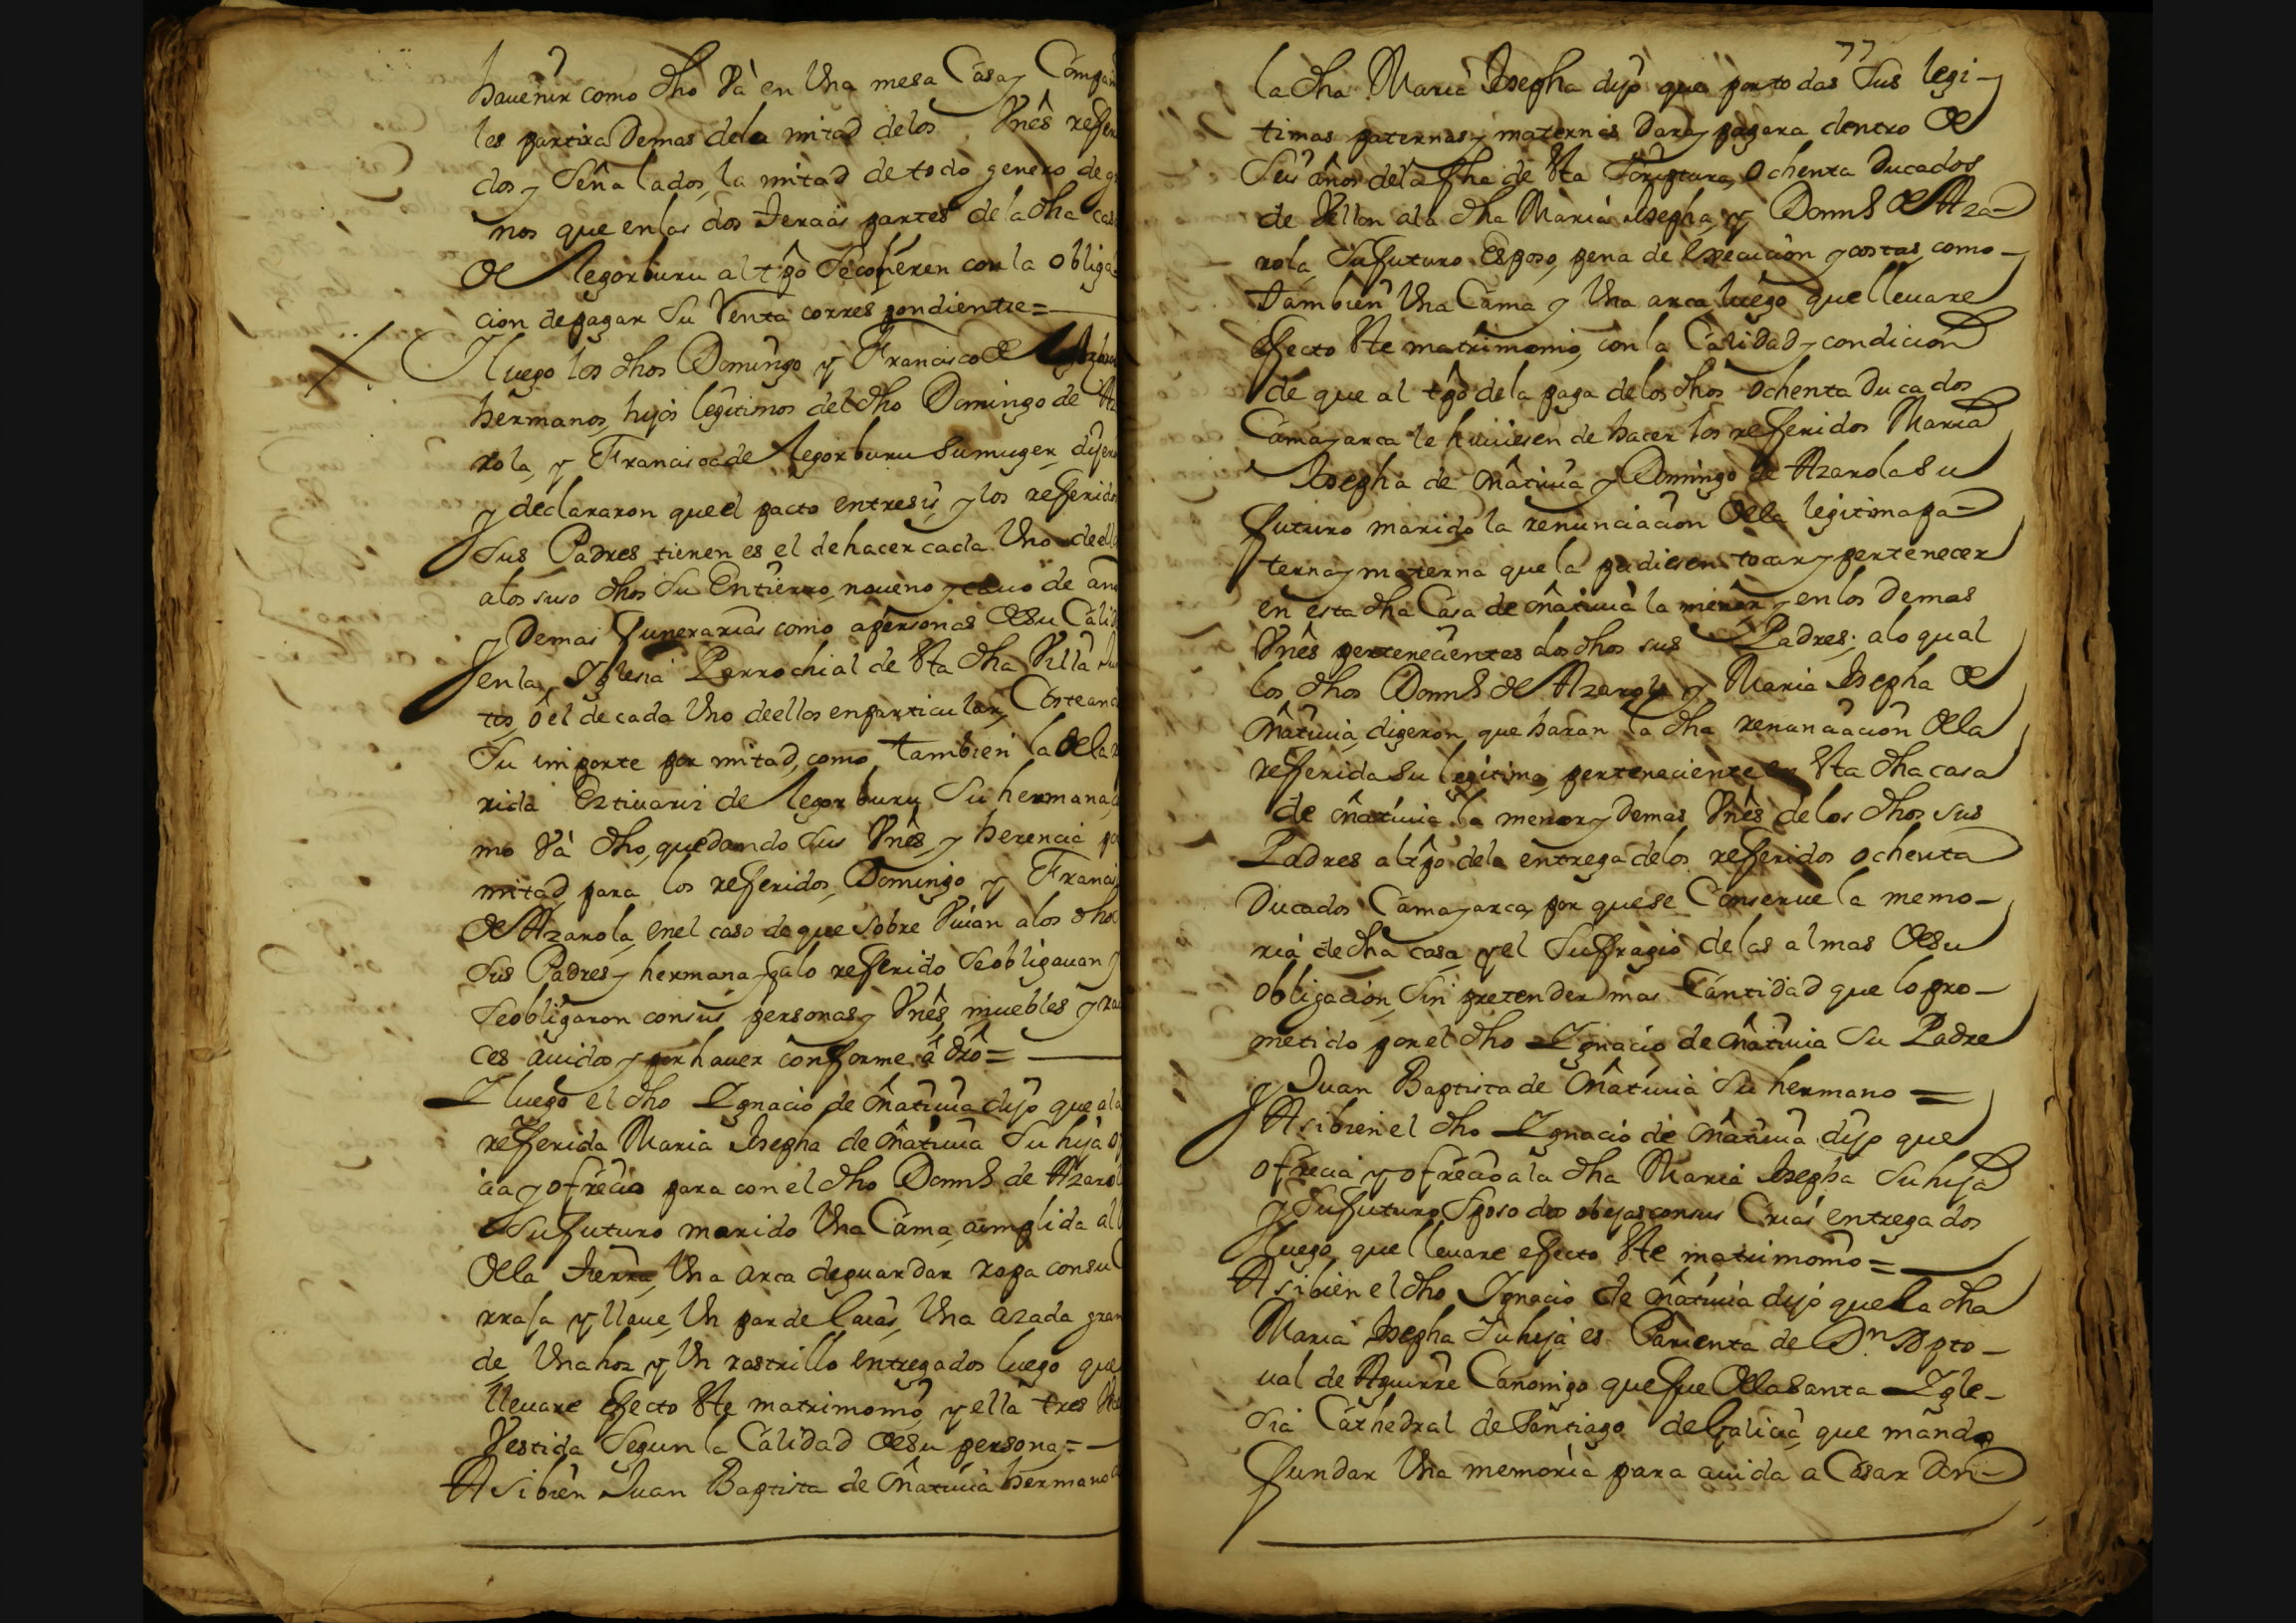 havenir como dho Va en Una mesa Casa y Compañ
les partira Demas dela mitad delos Vnês referi
dos y Señalados, la mitad de todo genero de gra
nos que en las dos terzias partes dela dha casa
de legorburu al tpô Se cojieren con la obliga-
cion de pagar Su Renta correspondiente=
Y luego los dhos Domingo y Francisco de
hermanos, hijos legitimos del dho Domingo de Aza
rola, y Francisca de legorburu Su muger, dijeron
y declararon que el pacto entre si, y los referidos
Sus Padres tienen es el de hacer cada Uno de ellos
a los suso dhos Su Entierro, noveno y cavo de año
y Demas funerarias como a personas de Su Calid
en la Iglesia Parrochial de Vta dha Villa
tis, ô el de cada Uno de ellos en particular, Costeando
Su importe por mitad, como tambien la de la
rida Eztivariz de legorburu Su hermana,
mo Va dho, quedando Sus Vnês, y herencia por
mitad para los referidos Domingo y Francis
de Azarola, en el caso de que Sobre Vivan a los dhos
Sus Padres y hermana y a lo referido Se obligavan y
Se obligaron con sus personas y Vnês, muebles y rai
ces avidos y por haver conforme â drô=
Y luego el dho Ignacio de Mâtivia dijo que a la
referida Maria Josepha de Mâtivia Su hija of
cia y ofrecio para con el dho Doming de Azarol
Su futuro marido Una Cama cumplida al
de la tierra, Una arca de guardar ropa con su
rraja y llave, Un par de laias, Una azada gran
de, Una hoz y Un rastrillo entregados luego que
llevare efecto Vte matrimonio, y ella tres
Vestida Segun la Calidad de Su persona=
Asi bien Juan Baptista de Mâtivia hermano
77
la dha Maria Josepha dijo que por todas Sus legi-
timas paternas y maternas Dara y pagara dentro de
Seis años de la fha de Vta Scriptura, Ochenta Ducados
de Vellon a la dha Maria Josepha, y Doming de Aza-
rola, Su futuro Esposo, pena de Execucion y costas, como-
tambien Una Cama y Una arca luego que llevare
efecto Vte matrimonio, con la Calidad y condicion
de que al tpô de la paga de los dhos Ochenta Ducados
Cama y arca le huviesen de hacer los referidos Maria
Josepha de Mâtivia y Domingo de Azarola Su
futuro marido la renunciacion de la legitima pa-
terna y materna que la pudiesen tocar y pertenecer
en esta dha Casa de Mâtivia la menor y en los Demas
Vnês pertenecientes a los dhos sus Padres; a lo qual
los dhos Doming de Azarola y Maria Josepha de
Mâtivia, digeron que haran la dha renunciacion de la
referida Su legitima perteneciente en Vta dha casa
de Mâtivia la menor y Demas Vnês de los dhos sus
Padres al tpô dela entrega delos referidos Ochenta
Ducados Cama y arca, por que se Conserve la memo-
ria de dha casa, y el Sufragio de las almas de Su
obligacion, Sin pretender mas Cantidad que lo pro-
metido por el dho Ignacio de Mâtivia Su Padre
y Juan Baptista de Mâtivia Su hermano =
Asi bien el dho Ignacio de Mâtivia dijo que
ofrecia y ofrecio a la dha Maria Josepha Su hija
y Su futuro Sposo dos obejas con sus Crias entregados
luego que llevare efecto Vte matrimonio=
Asi bien el dho Ignacio de Mâtivia dijo que la dha
Maria Josepha Su hija es Parienta de Dn. Xpto-
ual de Aguirre Canonigo que fue de la Santa Igle-
sia Cathedral de Santiago de Galicia, que mandó
fundar Una memoria para aiuda a Casar Don-